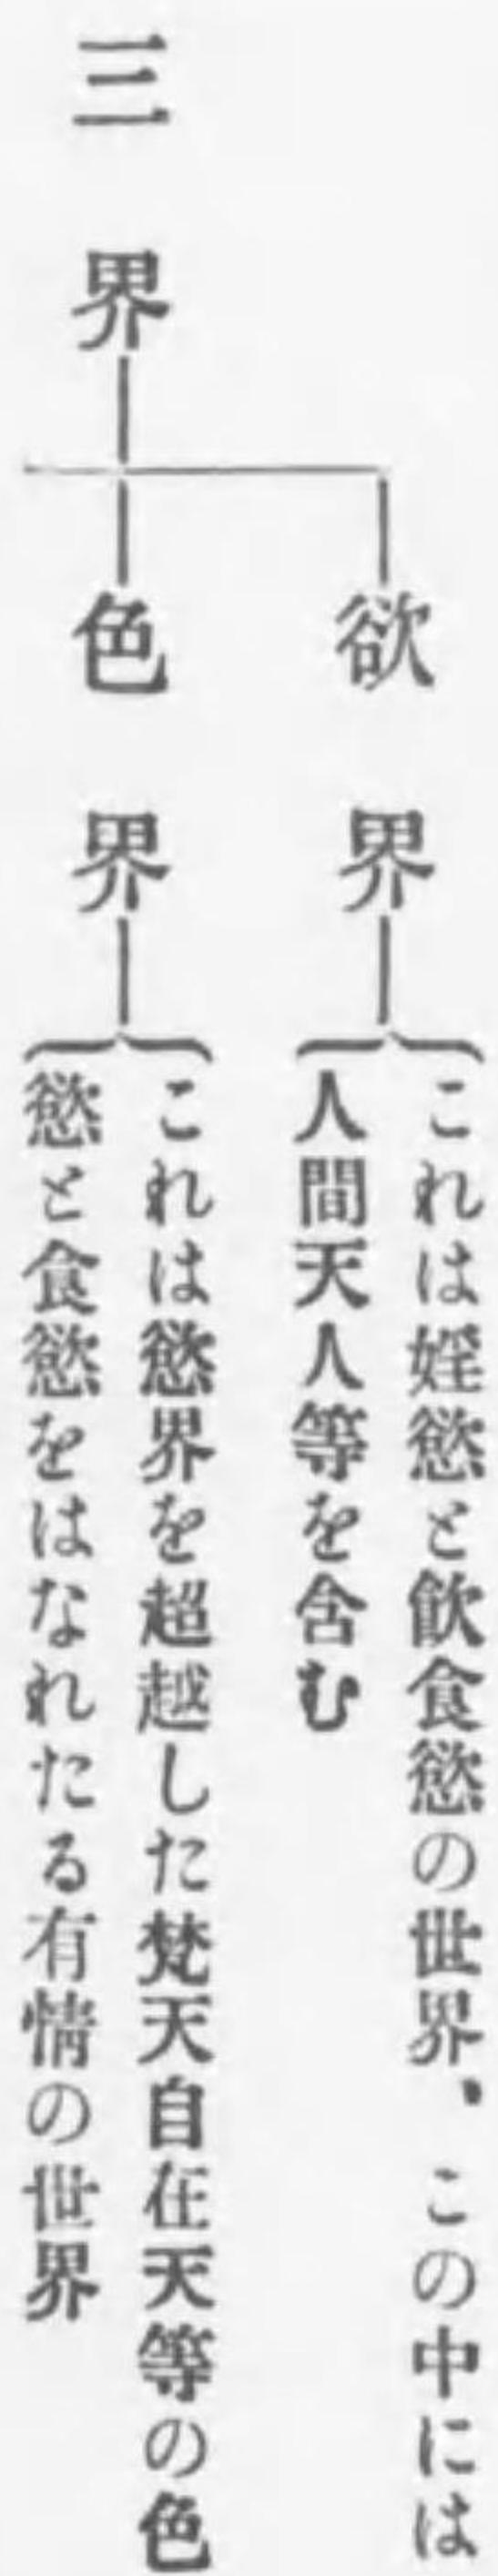 三界
欲界
これは婬慾と飮食慾の世界、この中には
人間天人等を含む
色界
これは慾界を超越した梵天自在天等の色
慾と食慾をはなれたる有情の世界